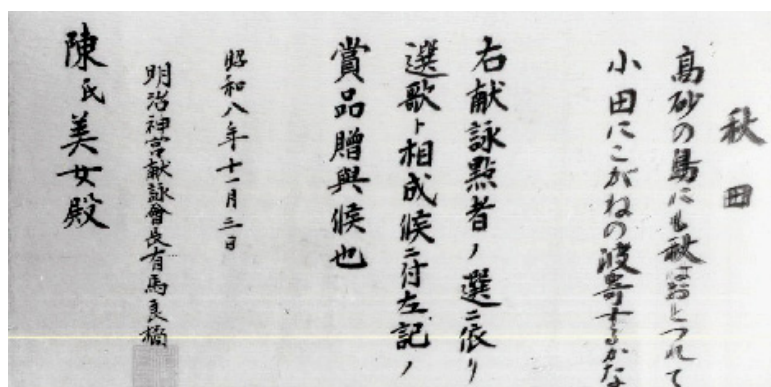 秋田
高砂の島にも秋はおとつれて
小田にこがねの波寄するかな
右献詠點者ノ選ニ依リ
選歌ト相成候ニ付左記ノ
賞品贈與候也
昭和八年十一月三日
明治神宮献詠會長有馬良橘
陳氏美女殿